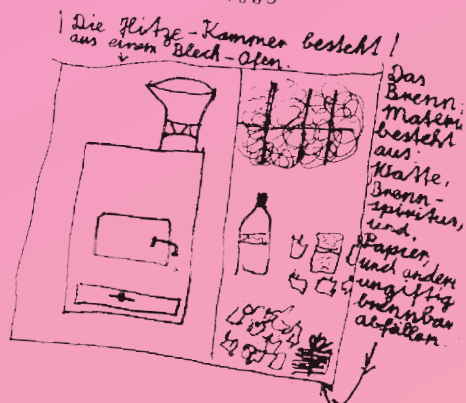 Die Hitze-Kammer besteht
aus einem Blech-Ofen.
Das
Brenn-
Materi
besteht
aus:
Watte,
Brenn-
spiritus,
und,
Papier,
und andere
ungiftig
brennbar
abfällen.